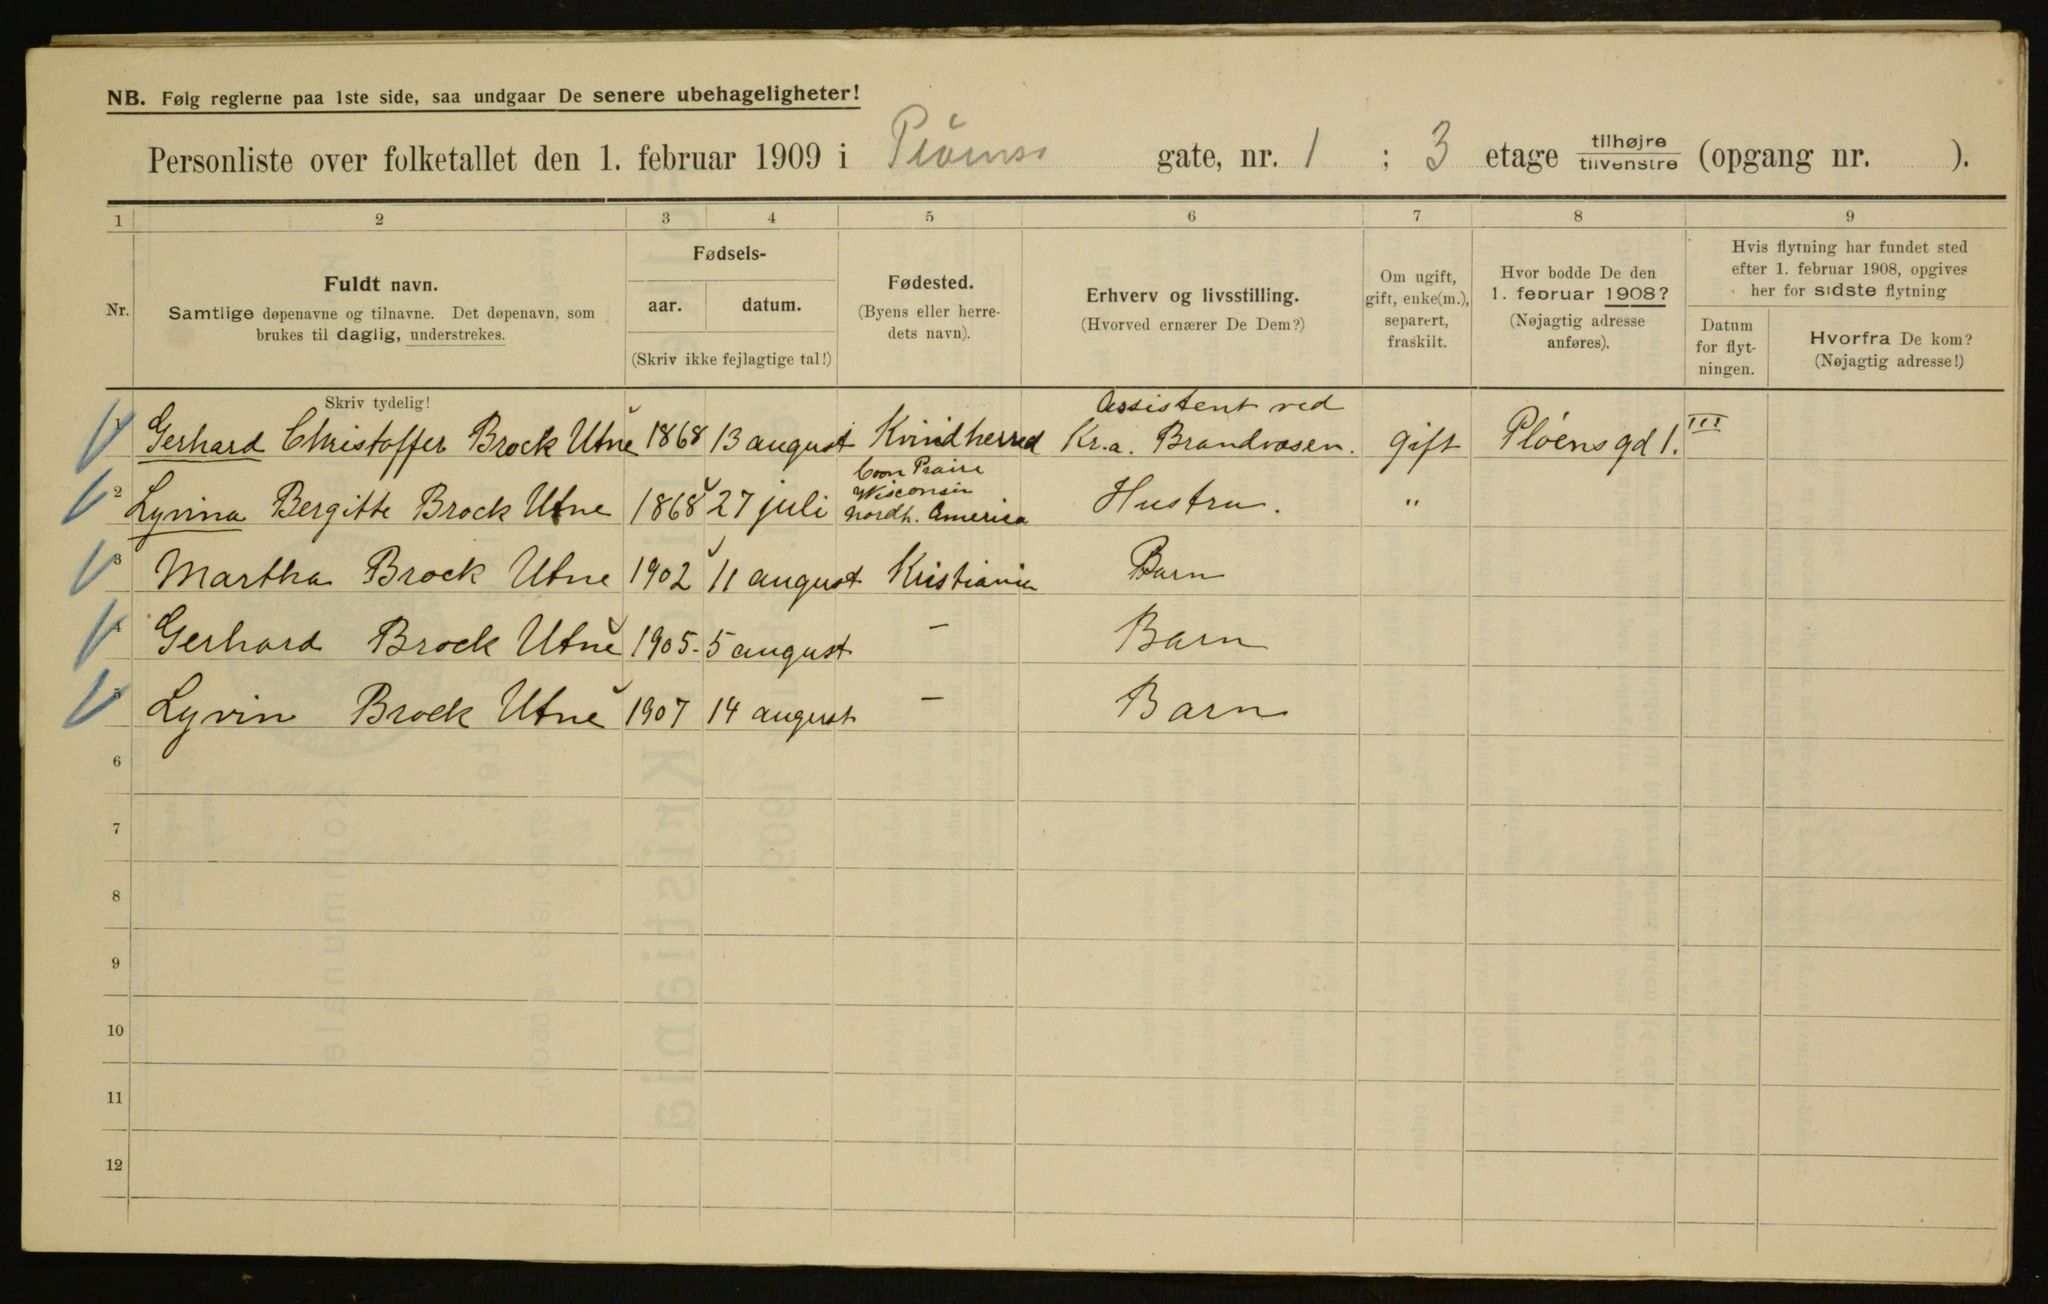 NB. Følg reglerne paa 1ste side, saa undgaar De senere ubehageligheter!
Personliste over folketallet den 1. februar 1909 i Pløens gate, nr. 1 ; 3 etage tilhøjre tilvenstre (opgang nr. ).
1 2 3 4 5 6 7 8 9
Nr.
Fuldt navn.
Samtlige døpenavne og tilnavne. Det døpenavn, som
brukes til daglig, understrekes.
Skriv tydelig!
Fødsels-
aar. datum.
(Skriv ikke fejlagtige tal!)
Fødested.
(Byens eller herre-
dets navn).
Erhverv og livsstilling.
(Hvorved ernærer De Dem?)
Om ugift,
gift, enke(m.),
separert,
fraskilt.
Hvor bodde De den
1. februar 1908?
(Nøjagtig adresse
anføres).
Hvis flytning har fundet sted
efter 1. februar 1908, opgives
her for sidste flytning
Datum
for flyt-
ningen.
Hvorfra De kom?
(Nøjagtig adresse!)
1 Gerhard Christoffer Brock Utne 1868 13 august Kvindherred Assistent ved
Kr.a. Brandvæsen. gift Pløens gd 1. III
2 Lyvina Bergitte Brock Utne 1868 27 juli Coon Praire
Wisconsin
Nordh. America Hustru. "
3 Martha Brock Utne 1902 11 august Kristiania Barn
4 Gerhard Brock Utne 1905 5 august - Barn
5 Lyvin Brock Utne 1907 14 august - Barn
6
7
8
9
10
11
12